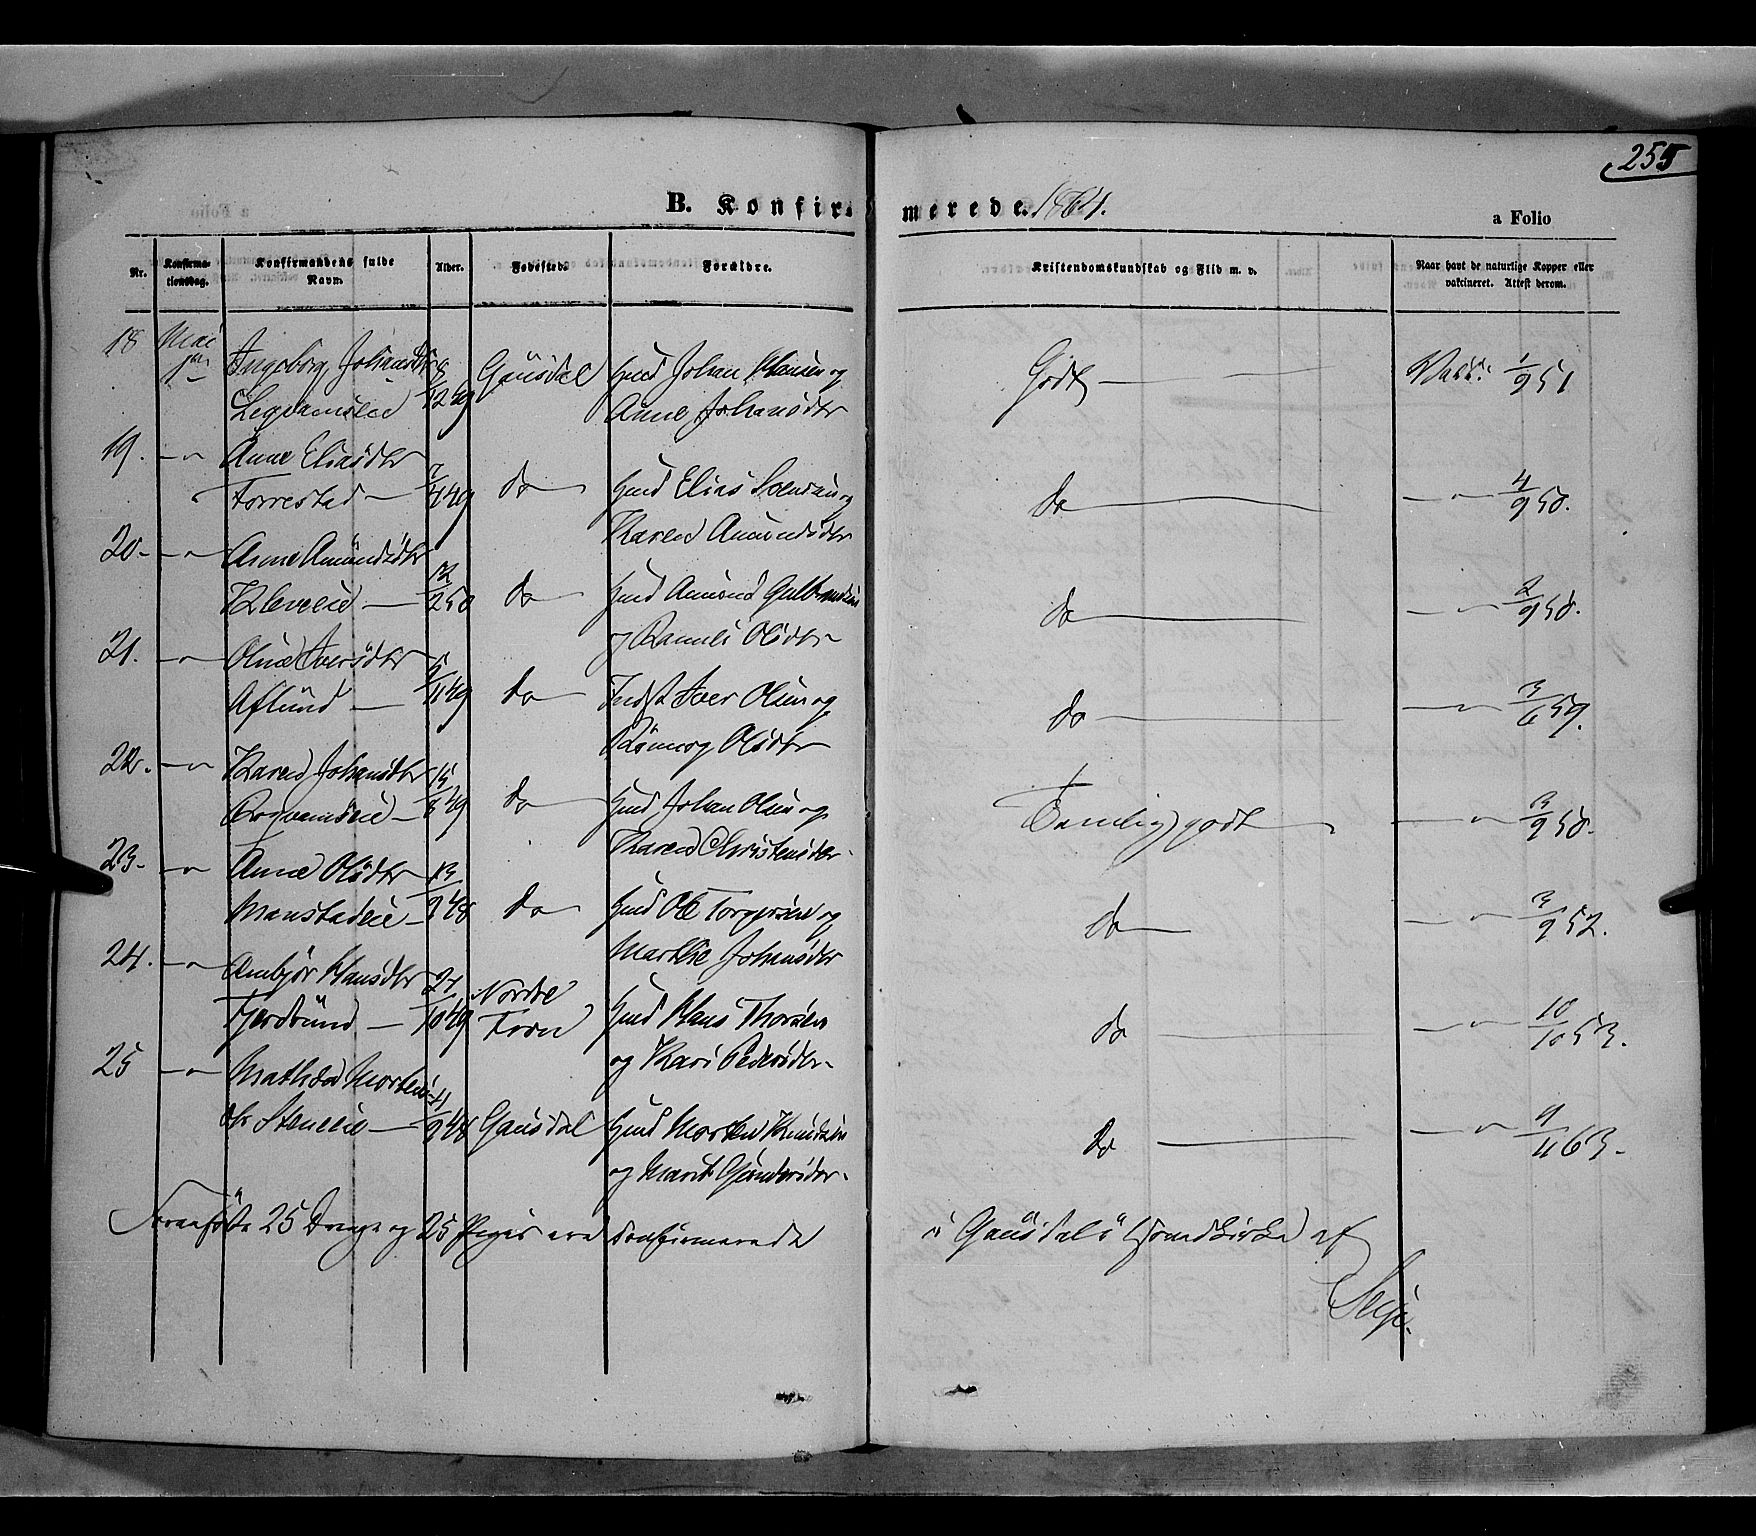 255
B. Konfirmerede. 1864.
a Folio
Nr.
Konfirmationsdag.
Konfirmandens fulde Navn.
Alder.
Fødested.
Forældre.
Kristendomskundskab og Flid m. v.
Naar havt de naturlige Kopper eller vakcineret. Attest derom.
18 Mai Ingeborg Johansdtr 8/12 49 Gausdal Hmd Johan Hansen og Godt — Vacc. 1/9 51
Anne Johansdtr
19. —"— Anne Eliasdtr
Forrestad — 7/4 49 do — Hmd Elias Svendsen og do — —"— 4/9 50.
Karen Amundsdtr
20. —"— Anne Amundsdtr
Kleveeie — 12/2 50 do — Hmd Amund Gulbrandsen do — —"— 2/9 50.
og Olsdtr
21. —"— Oline Iversdtr
Aflund — 5/11 49 do — Indst Iver Olsen og do — —"— 3/6 59.
Rønnog Olsdtr
22. —"— Karen Johansdtr 15/
8 49 do — Hmd Johan Olsen og Temelig godt — —"— 3/9 50.
Karen Christensdtr
23. —"— Anne Olsdtr 13/
9 48 do — Hmd Ole Torgersen og do — —"— 3/9 52.
Marthe Johansdtr
24. —"— Ambjør Hansdtr 24/ Nordre
Fjerdbund — 10 49 Fron Hmd Hans Thorsen do — —"— 10/10 53.
og Kari Pedersdtr
25 —"— Mathea Mortens-
dtr Steneeie — /9 48 Gausdal Hmd Morten Knudsen do — —"— 9/11 63.
og Marit Gundersdtr
Foranførte 25 Drenge og 25 Piger ere konfirmerede i Gausdals Hovedkirke af